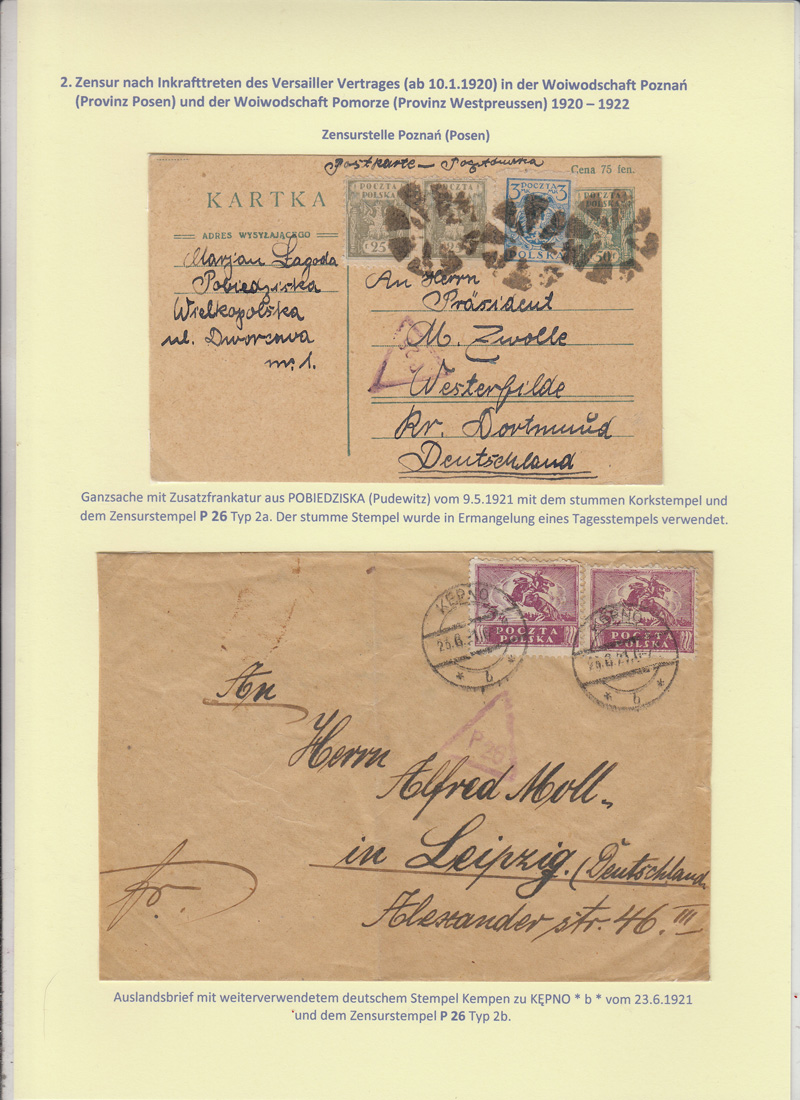 2. Zensur nach Inkrafttreten des Versailler Vertrages (ab 10.1.1920) in der Woiwodschaft Poznań
(Provinz Posen) und der Woiwodschaft Pomorze (Provinz Westpreussen) 1920 – 1922
Zensurstelle Poznań (Posen)
Postkarte – Pocztówka
Cena 75 fen.
KARTKA
ADRES WYSYŁAJĄCEGO
POCZTA
POLSKA
25
POCZTA
25
3 POCZTA 3
POLSKA
POCZTA
POLSKA
50
Marjan Łagoda
Pobiedziska
Wielkopolska
ul. Dworcowa
nr. 1.
An Herrn
Präsident
M. Zwolle
Westerfilde
Kr. Dortmund
Deutschland
P 26
Ganzsache mit Zusatzfrankatur aus POBIEDZISKA (Pudewitz) vom 9.5.1921 mit dem stummen Korkstempel und
dem Zensurstempel P 26 Typ 2a. Der stumme Stempel wurde in Ermangelung eines Tagesstempels verwendet.
POCZTA
POLSKA
POCZTA
POLSKA
KĘPNO
* b *
KĘPNO
* b *
P 26
An
Herrn
Alfred Moll
in Leipzig. (Deutschland
Alexander str. 46. III
fr.
Auslandsbrief mit weiterverwendetem deutschem Stempel Kempen zu KĘPNO * b * vom 23.6.1921
und dem Zensurstempel P 26 Typ 2b.